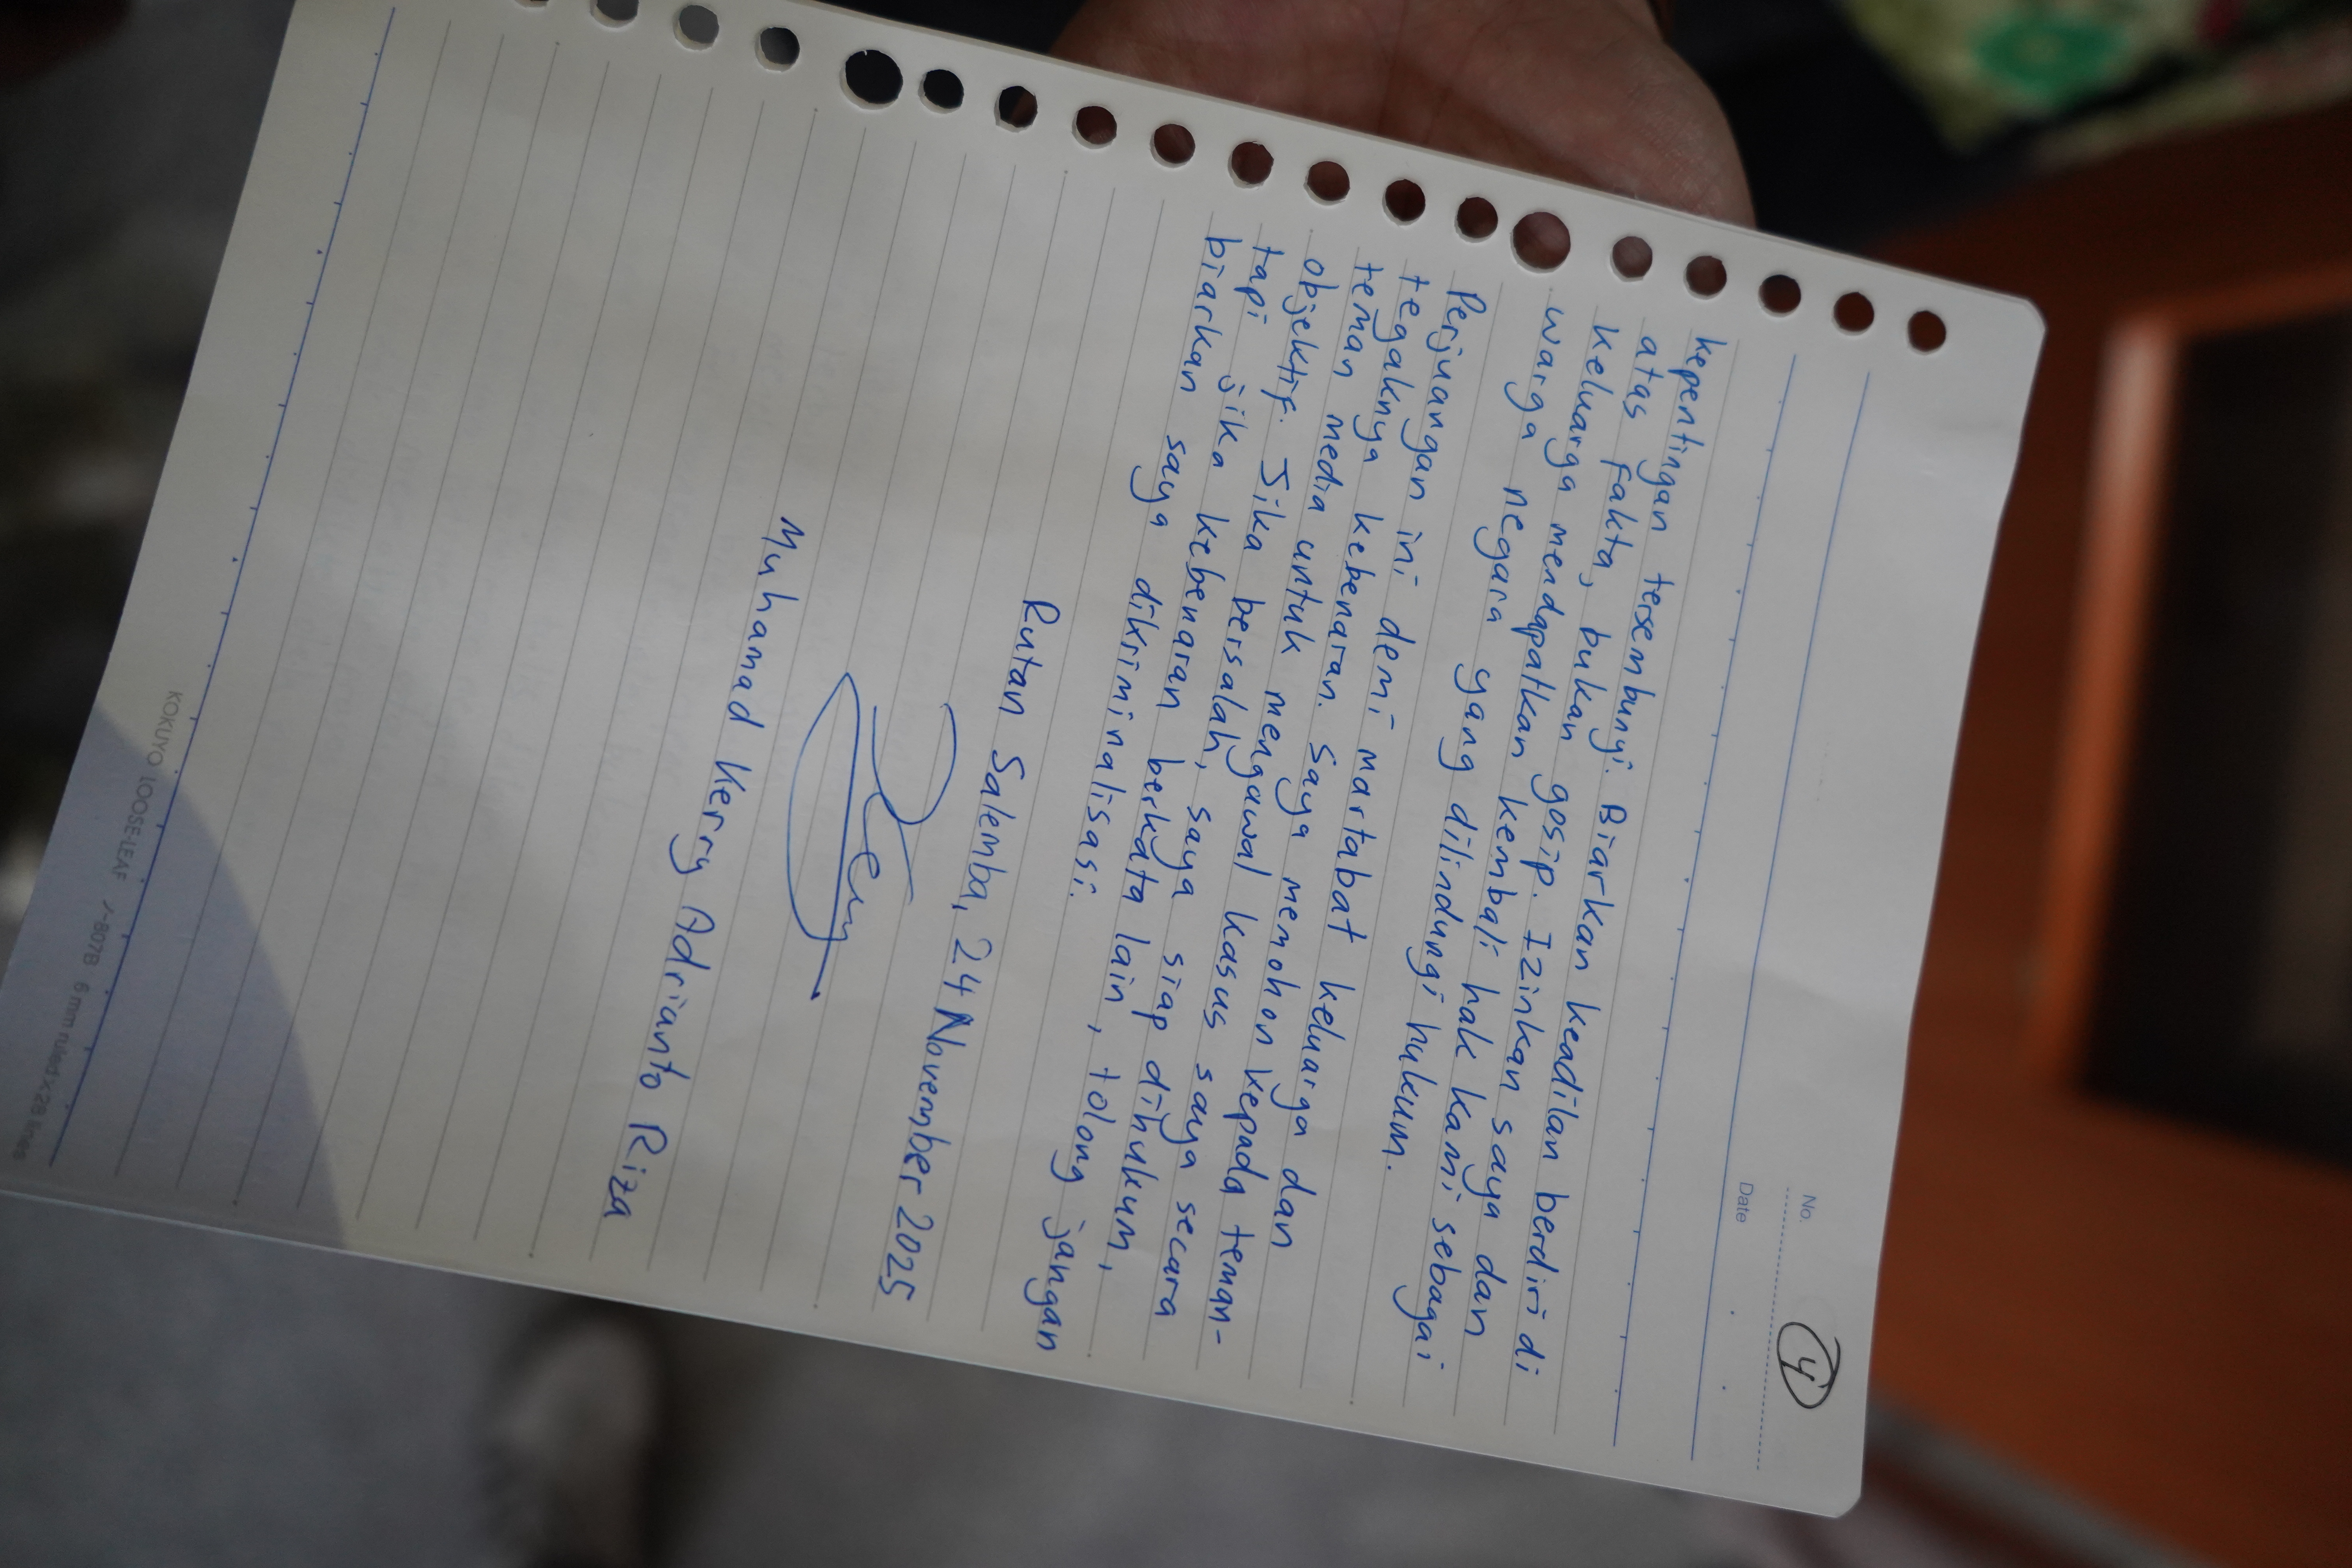 No.
4
Date
kepentingan tersembunyi. Biarkan keadilan berdiri di
atas fakta, bukan gosip. Izinkan saya dan
keluarga mendapatkan kembali hak kami sebagai
warga negara yang dilindungi hukum.
Perjuangan ini demi martabat keluarga dan
tegaknya kebenaran. Saya memohon kepada teman-
teman media untuk mengawal kasus saya secara
objektif. Jika bersalah, saya siap dihukum,
tapi jika kebenaran berkata lain, tolong jangan
biarkan saya dikriminalisasi.
Rutan Salemba, 24 November 2025
Muhamad Kerry Adrianto Riza
KOKUYO LOOSE-LEAF ノ-807B 6 mm ruled×28 lines